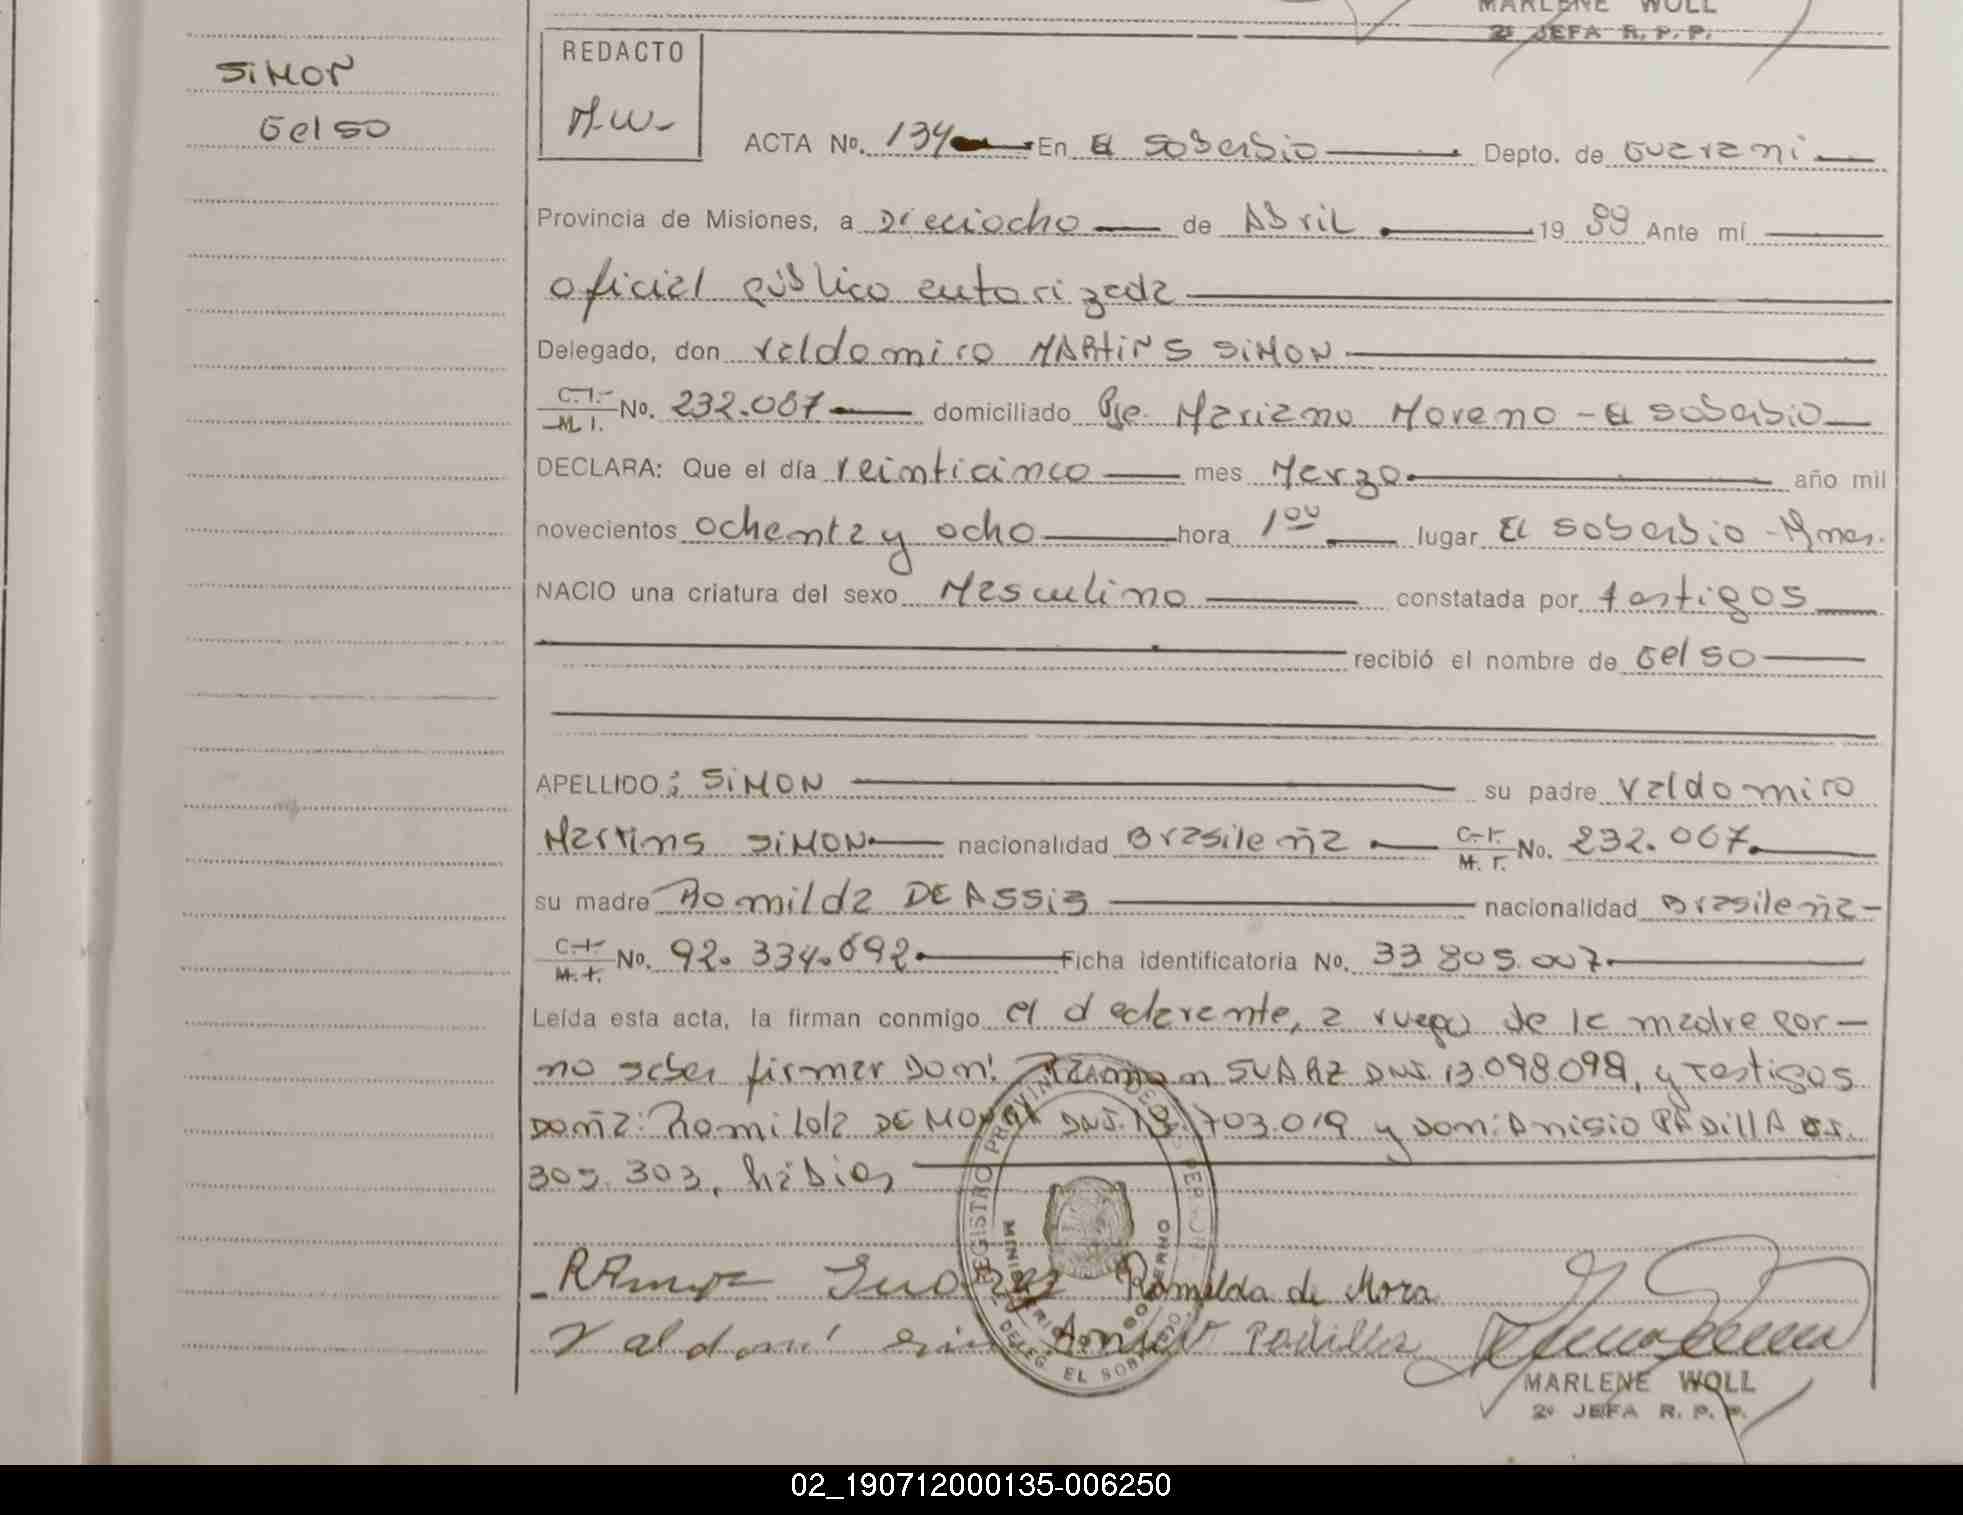 MARLENE WOLL
2ª JEFA R. P. P.
SIMON
Gelso
REDACTO
M.W.-
ACTA No. 134 En El Soberbio Depto. de Guarani
Provincia de Misiones, a Dieciocho de Abril 19 88 Ante mí
oficial público autorizada
Delegado, don Valdomiro MARTINS SIMON
C.I.- M I. No. 232.067 domiciliado Pje. Mariano Moreno - El Soberbio
DECLARA: Que el día veinticinco mes Marzo año mil
novecientos ochenta y ocho hora 1 00 lugar El Soberbio - Mnes.
NACIO una criatura del sexo Masculino constatada por testigos
recibió el nombre de Gelso
APELLIDO : SIMON su padre Valdomiro
Martins SIMON nacionalidad Brasileña C.I. M. I. No. 232.067.
su madre Romilda DE ASSIS nacionalidad Brasileña-
C.I. M.I. No. 92.334.692 Ficha identificatoria No. 33.805.007
Leída esta acta, la firman conmigo el declarante, a ruego de la madre por-
no saber firmar Don: Ramon SUARZ DNI. 13.098.098, y testigos
Doña: Romilda DE MORA DNI. 703.019 y Don: Anisio PADILLA
305.303, hábiles
Ramon Romilda de Mora
Valdomi Padilla
REGISTRO PROVIN DE PER
MINISTERIO GOBIERNO
DELEG. EL SOBERBIO
MARLENE WOLL
2ª JEFA R. P. P.
02_190712000135-006250